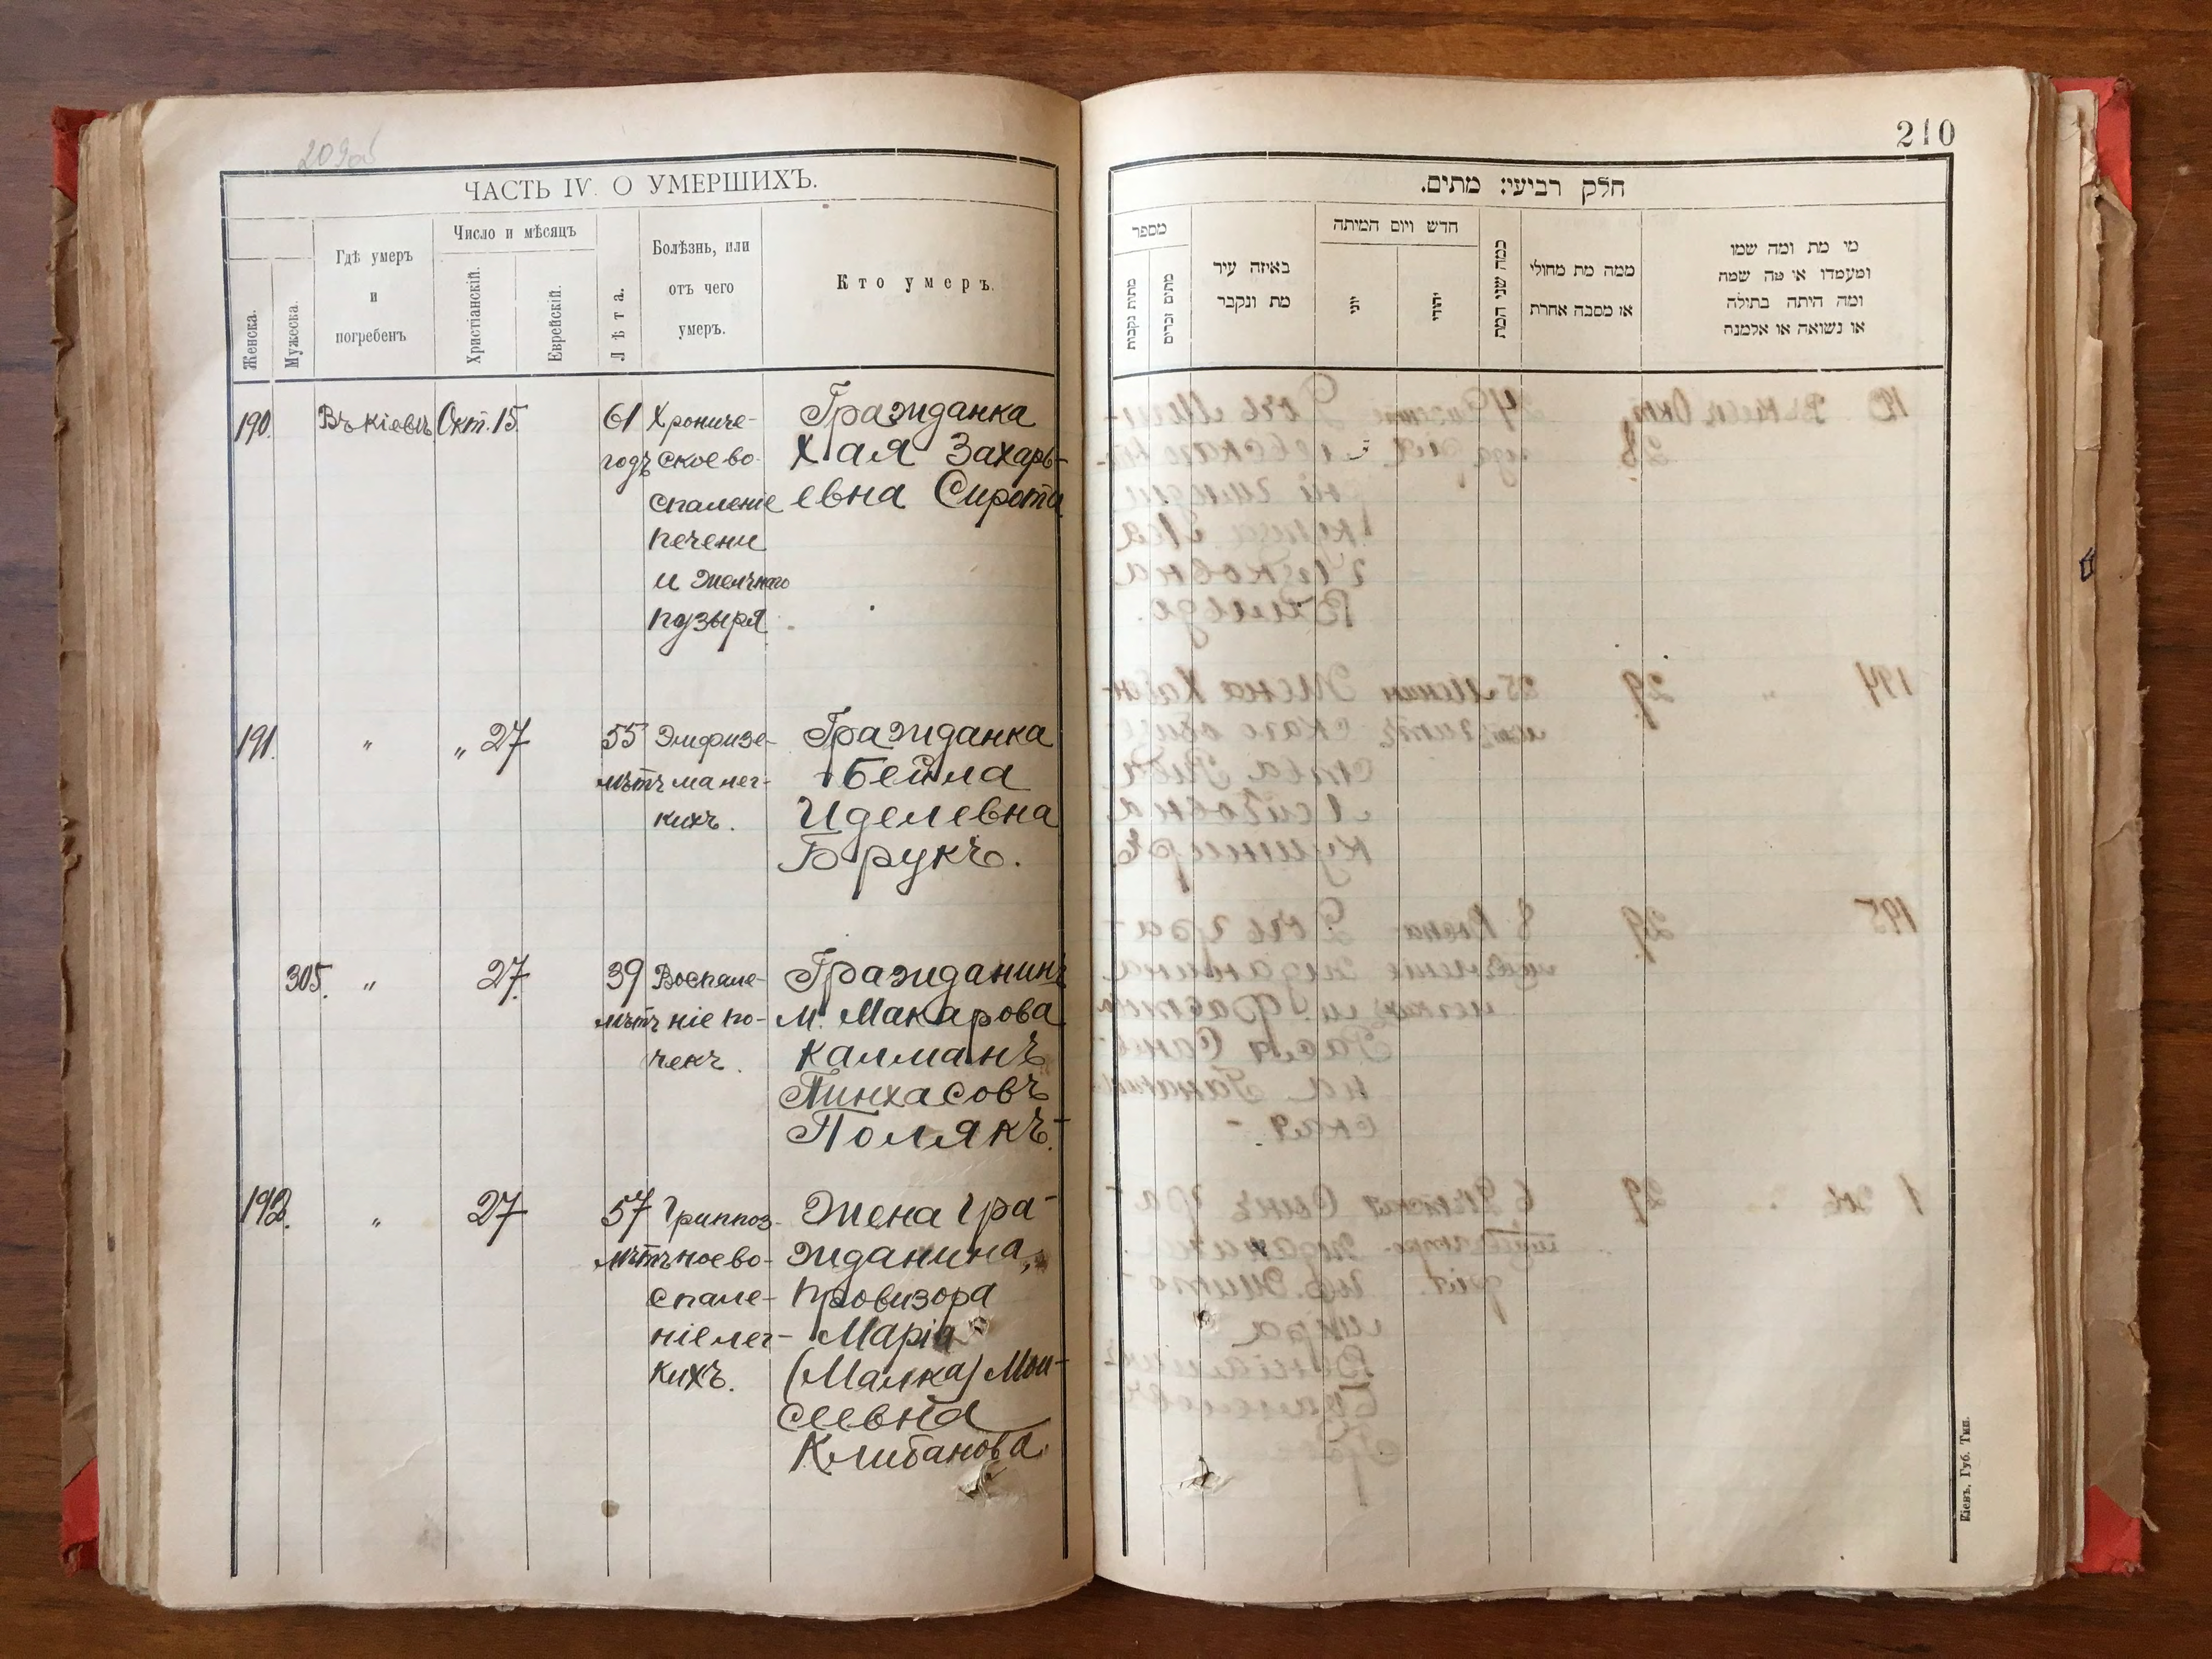 209об
ЧАСТЬ IV. О УМЕРШИХЪ.
Женска.
Мужеска.
Гдѣ умеръ
и
погребенъ
Число и мѣсяцъ
Христіанскій.
Еврейскій.
Лѣта.
Болѣзнь, или
отъ чего
умеръ.
Кто умеръ.
190.
Въ Кіевѣ
Окт. 15
61
годъ
Хрониче-
ское во-
спаленіе
печени
и желчнаго
пузыря.
Гражданка
Хая Захарь-
евна Сирота
191.
„
„ 27
55
лѣтъ
Эмфизе-
ма лег-
кихъ.
Гражданка
Бейла
Иделевна
Брукъ.
305.
„
27.
39
лѣтъ
Воспале-
ніе по-
чекъ.
Гражданинъ
м. Макарова
Калманъ
Пинхасовъ
Полякъ.
192.
„
27
57
лѣтъ
Гриппоз-
ное во-
спале-
ніе лег-
кихъ.
Жена гра-
жданина,
провизора
Марія
(Малка) Мои-
сеевна
Клибанова
210
חלק רביעי: מתים.
מספר
מתות נקבות
מתים זכרים
באיזה עיר
מת ונקבר
חדש ויום המיתה
יוני
יהודי
כמה שני המת
ממה מת מחולי
או מסבה אחרת
מי מת ומה שמו
ומעמדו או מה שמה
ומה היתה בתולה
או נשואה או אלמנה
Кіевъ, Губ. Тип.